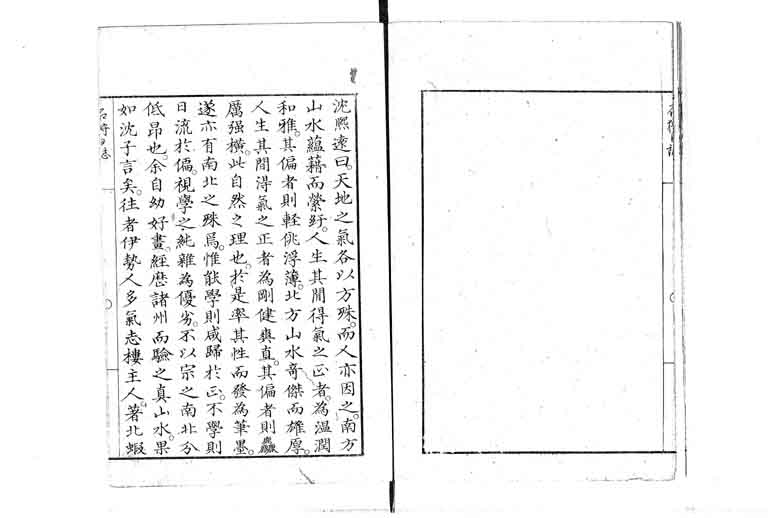 沈熙遠曰。天地之氣各以方殊。而人亦因之。南方
山水蘊藉而縈紆。人生其間得氣之正者。為溫潤
和雅。其偏者則輕佻浮薄。北方山水奇傑而雄厚。
人生其間得氣之正者為剛健爽直。其偏者則麤
厲强橫。此自然之理也。於是率其性而發為筆墨。
遂亦有南北之殊焉。惟能學則咸歸於正。不學則
日流於偏。視學之純雜為優劣。不以宗之南北分
低昂也。余自幼好畫。經歷諸州而驗之真山水。果
如沈子言矣。往者伊勢人多氣志樓主人。著北蝦